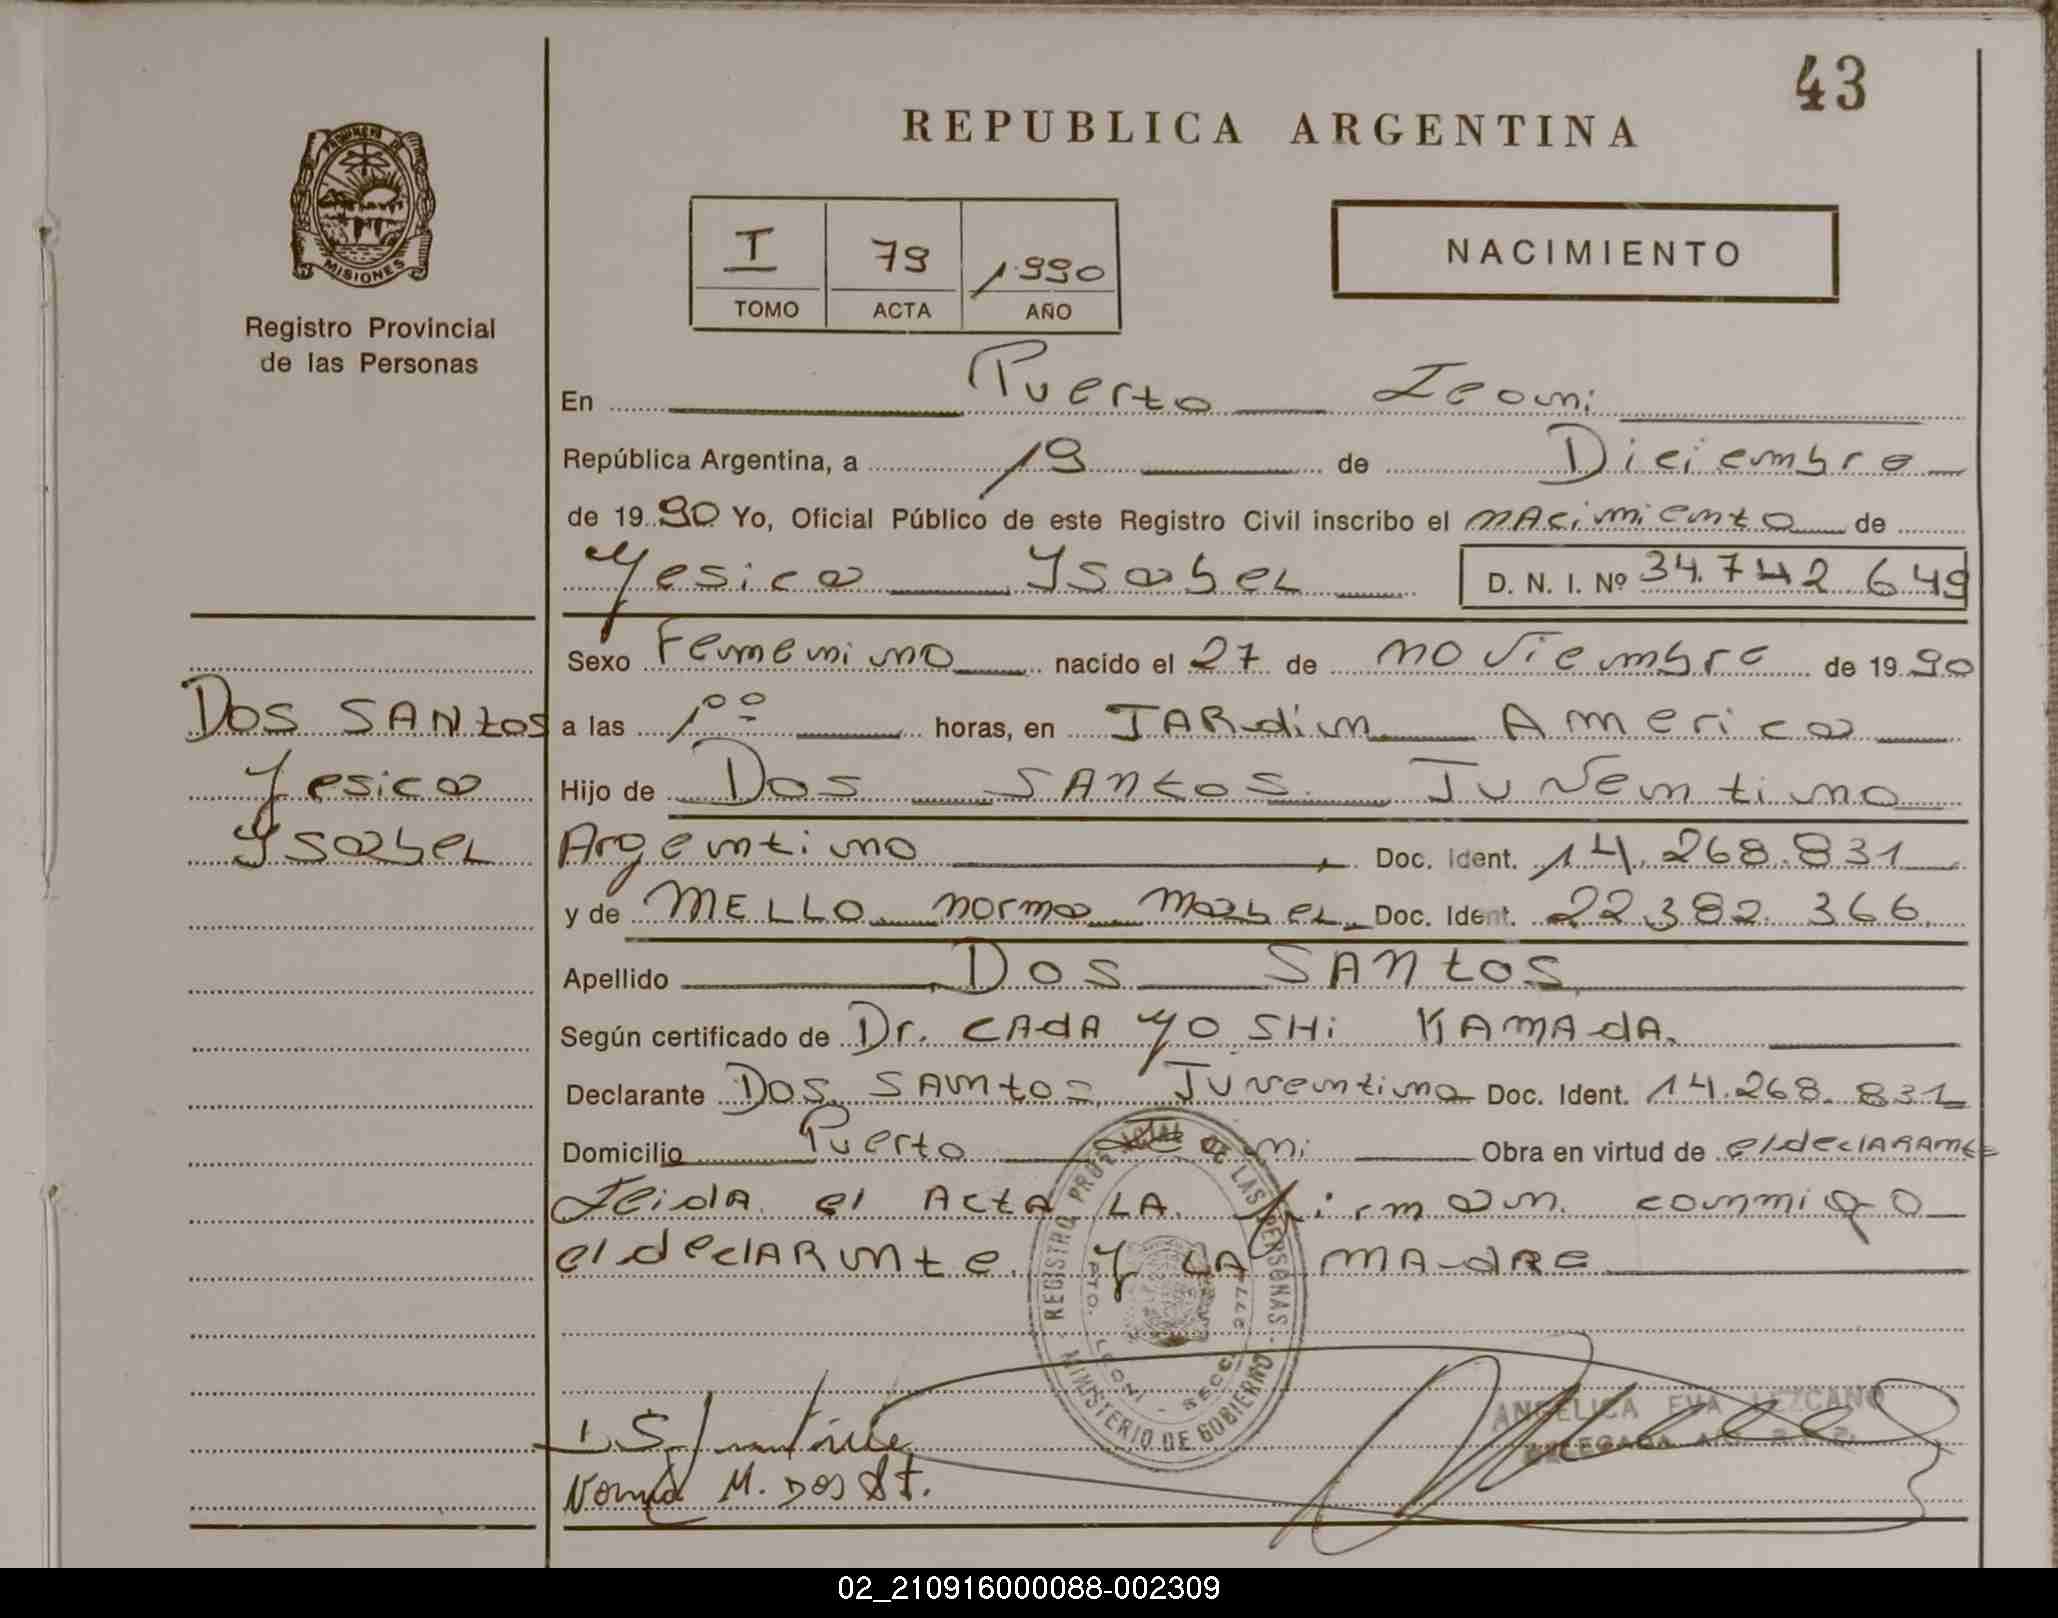 43
REPUBLICA ARGENTINA
PROVINCIA DE
MISIONES
Registro Provincial
de las Personas
I 79 1990
TOMO ACTA AÑO
NACIMIENTO
En Puerto Leoni
República Argentina, a 19 de Diciembre
de 1990 Yo, Oficial Público de este Registro Civil inscribo el nacimiento de
Yesica Ysabel D. N. I. Nº 34.742.649
Sexo Femenino nacido el 27 de noviembre de 1990
DOS SANtos
Yesica
YsabeL
a las 1°° horas, en JARdin America
Hijo de Dos SANtos Juventino
Argentino Doc. Ident. 14.268.831
y de MELLO norma mabeL Doc. Ident. 22.382.366
Apellido Dos SANtos
Según certificado de Dr. CAdA YOSHi KAMAdA.
Declarante Dos SAntos Juventino Doc. Ident. 14.268.831
Domicilio Puerto Leoni Obra en virtud de el declARAnte
Leida el ActA LA firman conmigo
el declARUnte y LA mAdRe
REGISTRO PROVINCIAL DE LAS PERSONAS
PTO. LEONI - SECC.
MINISTERIO DE GOBIERNO
Norma M. Dos St.
ANGELICA EVA LEZCANO
DELEGADA
02_210916000088-002309